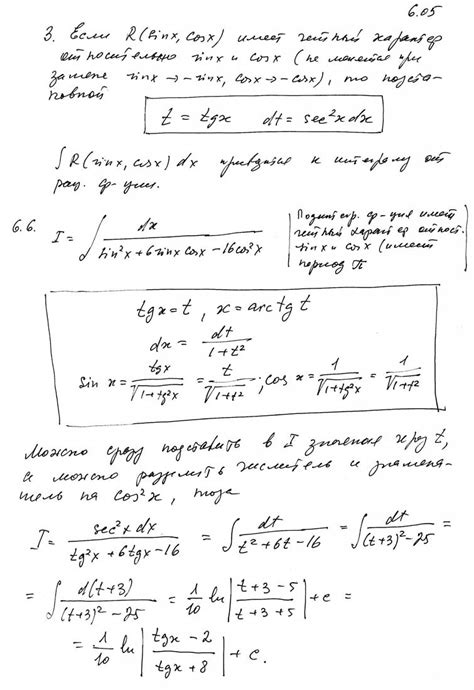 6.05
3. Если R(sinx, cosx) имеет четный характер
относительно sinx и cosx (не меняется при
замене sinx → -sinx, cosx → -cosx), то подста-
новкой
t = tgx   dt = sec²x dx
∫ R(sinx, cosx) dx приводится к интегралу от
рац. ф-ции.
6.6. I = ∫ dx / (sin²x + 6 sinx cosx - 16cos²x)
Подынтегр. ф-ция имеет
четный характер относ.
sinx и cosx (имеет
период π
tgx = t, x = arctg t
dx = dt / (1+t²)
sin x = tgx / √(1+tg²x) = t / √(1+t²); cos x = 1 / √(1+tg²x) = 1 / √(1+t²)
Можно сразу подставить в I значение через t,
а можно разделить числитель и знамена-
тель на cos²x, тогда
I = sec²x dx / (tg²x + 6tgx - 16) = ∫ dt / (t² + 6t - 16) = ∫ dt / ((t+3)² - 25) =
= ∫ d(t+3) / ((t+3)² - 25) = 1/10 ln |(t+3-5) / (t+3+5)| + c =
= 1/10 ln |(tgx - 2) / (tgx + 8)| + c.